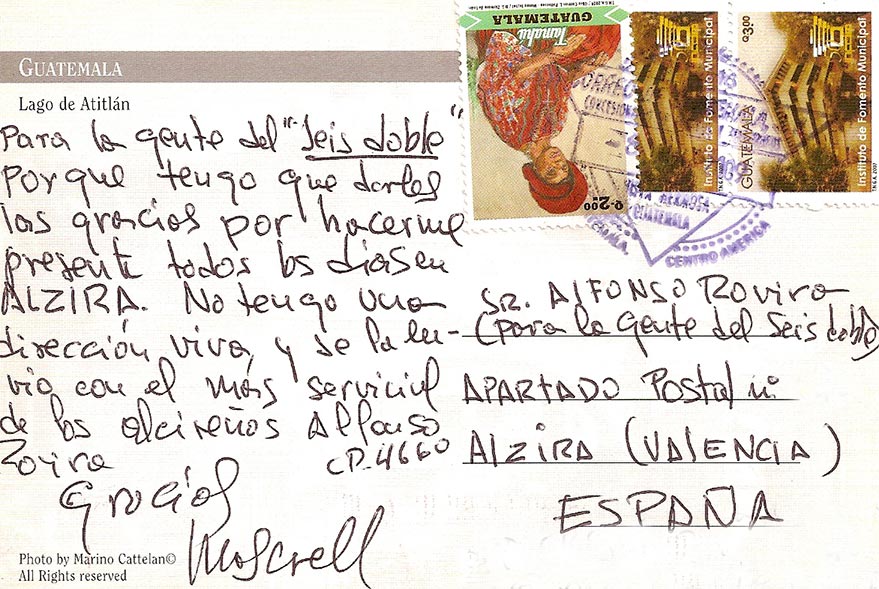 GUATEMALA
Lago de Atitlán
Para la gente del "Seis doble"
Porque tengo que darles
las gracias por hacerme
presente todos los días en
ALZIRA. No tengo una
dirección viva, y se la en-
vio con el más servicial
de los alcireños Alfonso
Rovira
CP. 4660
Gracias
Moscrell
Photo by Marino Cattelan©
All Rights reserved
GUATEMALA
Tamahú
Q.2.00
Instituto de Fomento Municipal
Q3.00
GUATEMALA
Instituto de Fomento Municipal
GUATEMALA
CENTRO AMERICA
SR. ALFONSO Rovira
(para la gente del Seis doble)
APARTADO Postal
Alzira (VALENCIA)
ESPAÑA